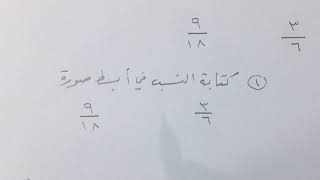 ٣/٦ ٩/١٨
١ كتابة النسب في أبسط صورة
٣/٦ ٩/١٨